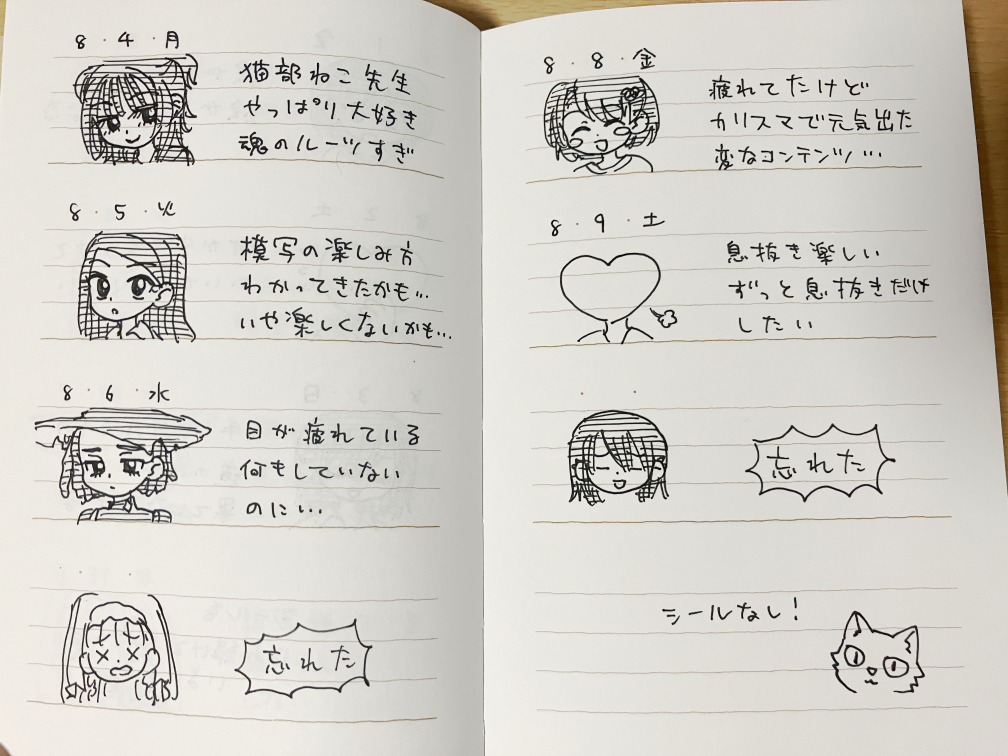 8・4・月
猫部ねこ先生
やっぱり大好き
魂のルーツすぎ
8・5・火
模写の楽しみ方
わかってきたかも…
いや楽しくないかも…
8・6・水
目が疲れている
何もしていない
のにい…
忘れた
8・8・金
疲れてたけど
カリスマで元気出た
変なコンテンツ…
8・9・土
息抜き楽しい
ずっと息抜きだけ
したい
忘れた
シールなし!